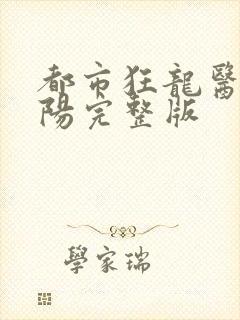 都市狂龍醫
陽完整版
學家瑞